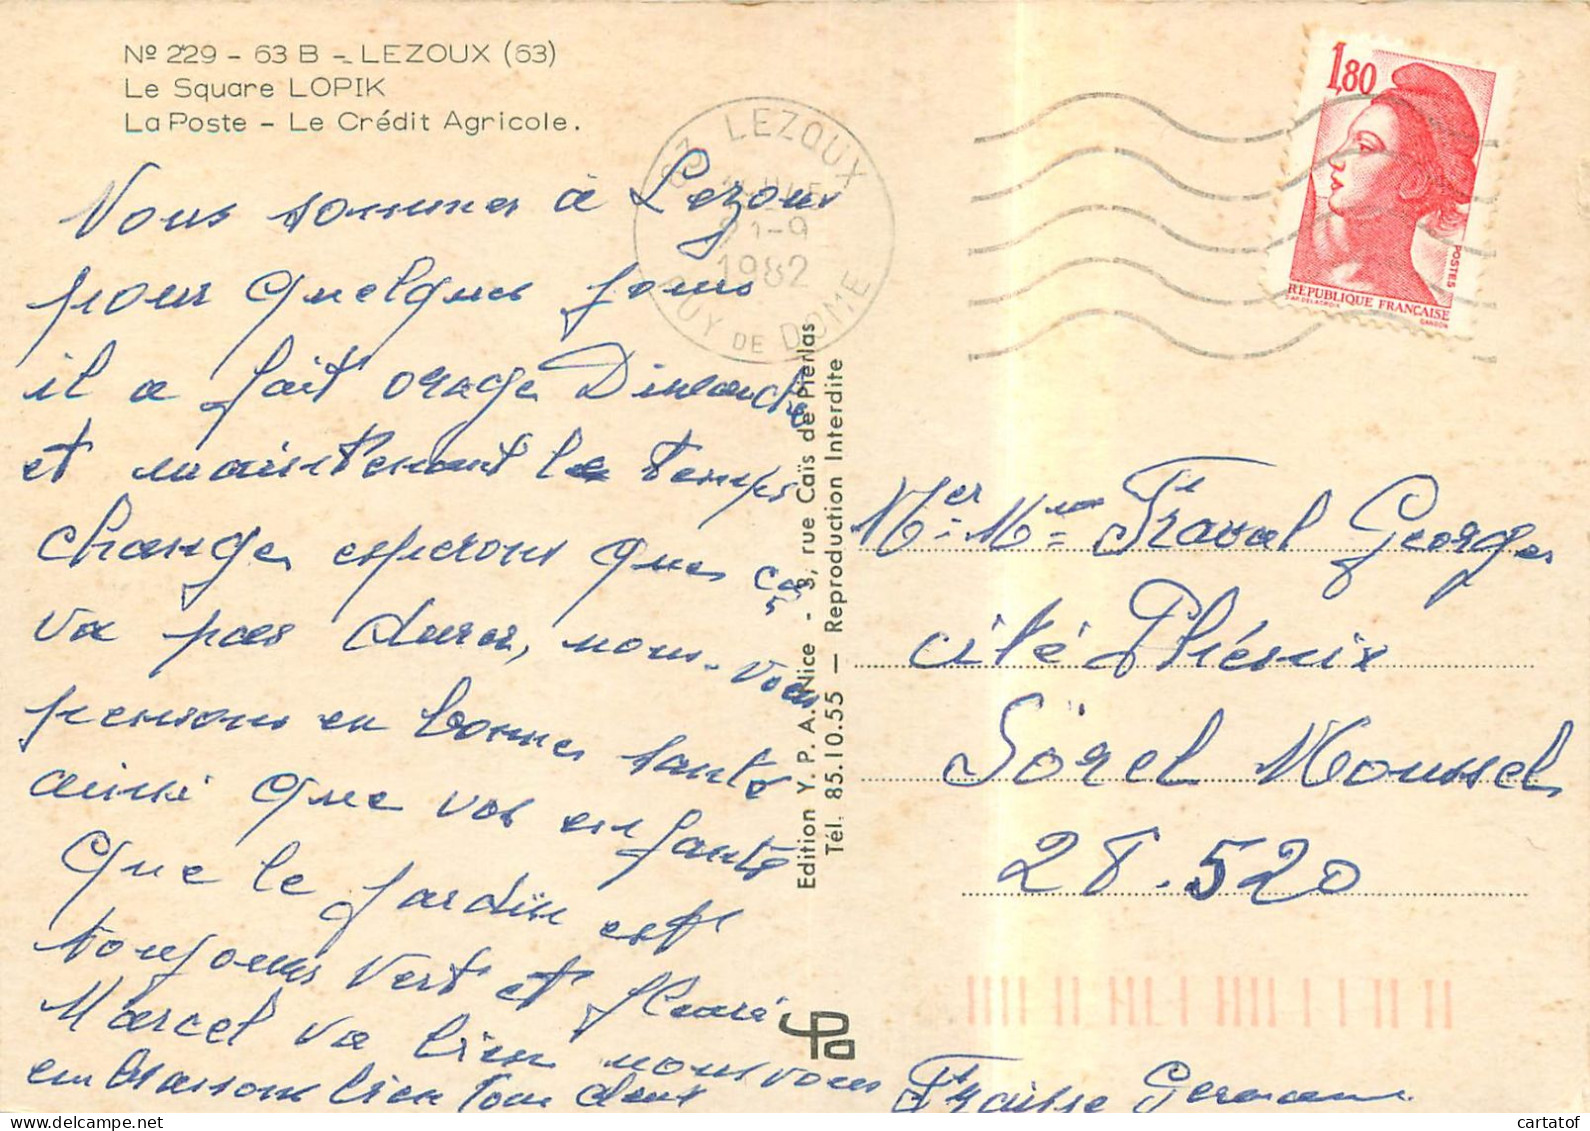 Nº 229 - 63 B - LEZOUX (63)
Le Square LOPIK
La Poste - Le Crédit Agricole.
Nous sommes à Lezoux
pour quelques jours
il a fait orage Dimanche
et maintenant le temps
change, esperons que ça
va pas durer, nous vous
pensons en bonnes santé
ainsi que vos enfants
que le jardin est
toujours vert et fleuri
Marcel va bien nous vous
embrassons bien tous deux
Fraisse Germaine
63 LEZOUX
21-9
1982
PUY DE DOME
1,80
POSTES
REPUBLIQUE FRANÇAISE
D'AP. DELACROIX
GANDON
Edition Y. P. A. Nice - 3, rue Caïs de Pierlas
Tél. 85.10.55 — Reproduction Interdite
Mr et Mme Fraval Georges
cité Phénix
Sorel Moussel
28.520
delcampe.net
cartatof